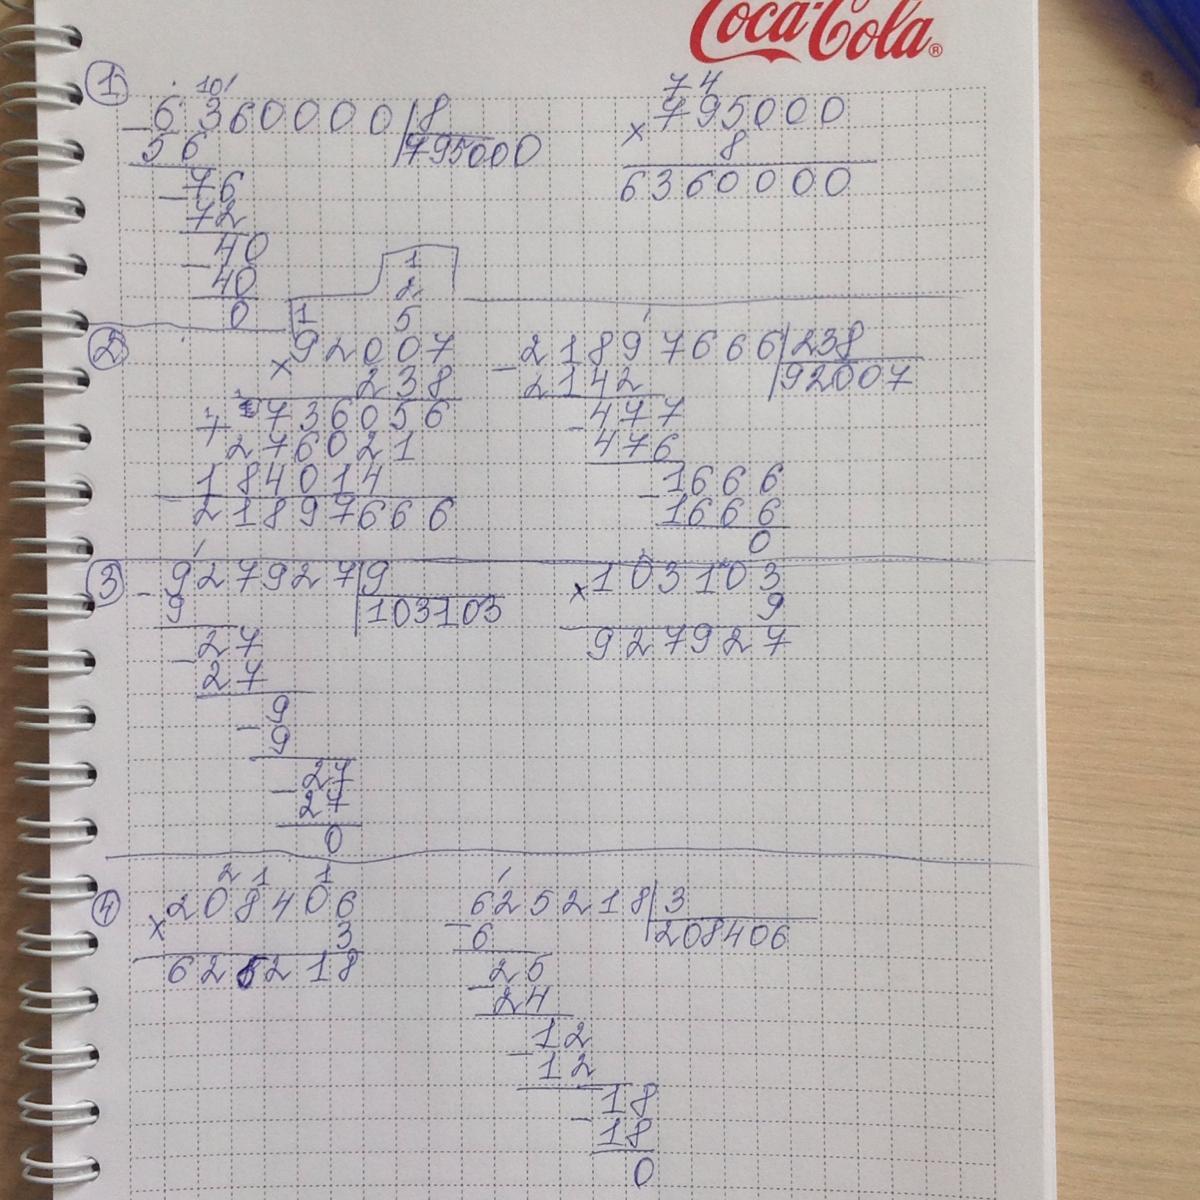 Coca-Cola®
1
10
6360000 | 8
56
795000
76
72
40
40
0
74
795000
× 8
6360000
2
1
2
1 5
92007
× 238
736056
+ 276021
184014
21897666
21897666 | 238
2142
92007
477
476
1666
1666
0
3
927927 | 9
9
103103
27
27
9
9
27
27
0
103103
× 9
927927
4
2 1 1
208406
× 3
625218
625218 | 3
6
208406
25
24
12
12
18
18
0